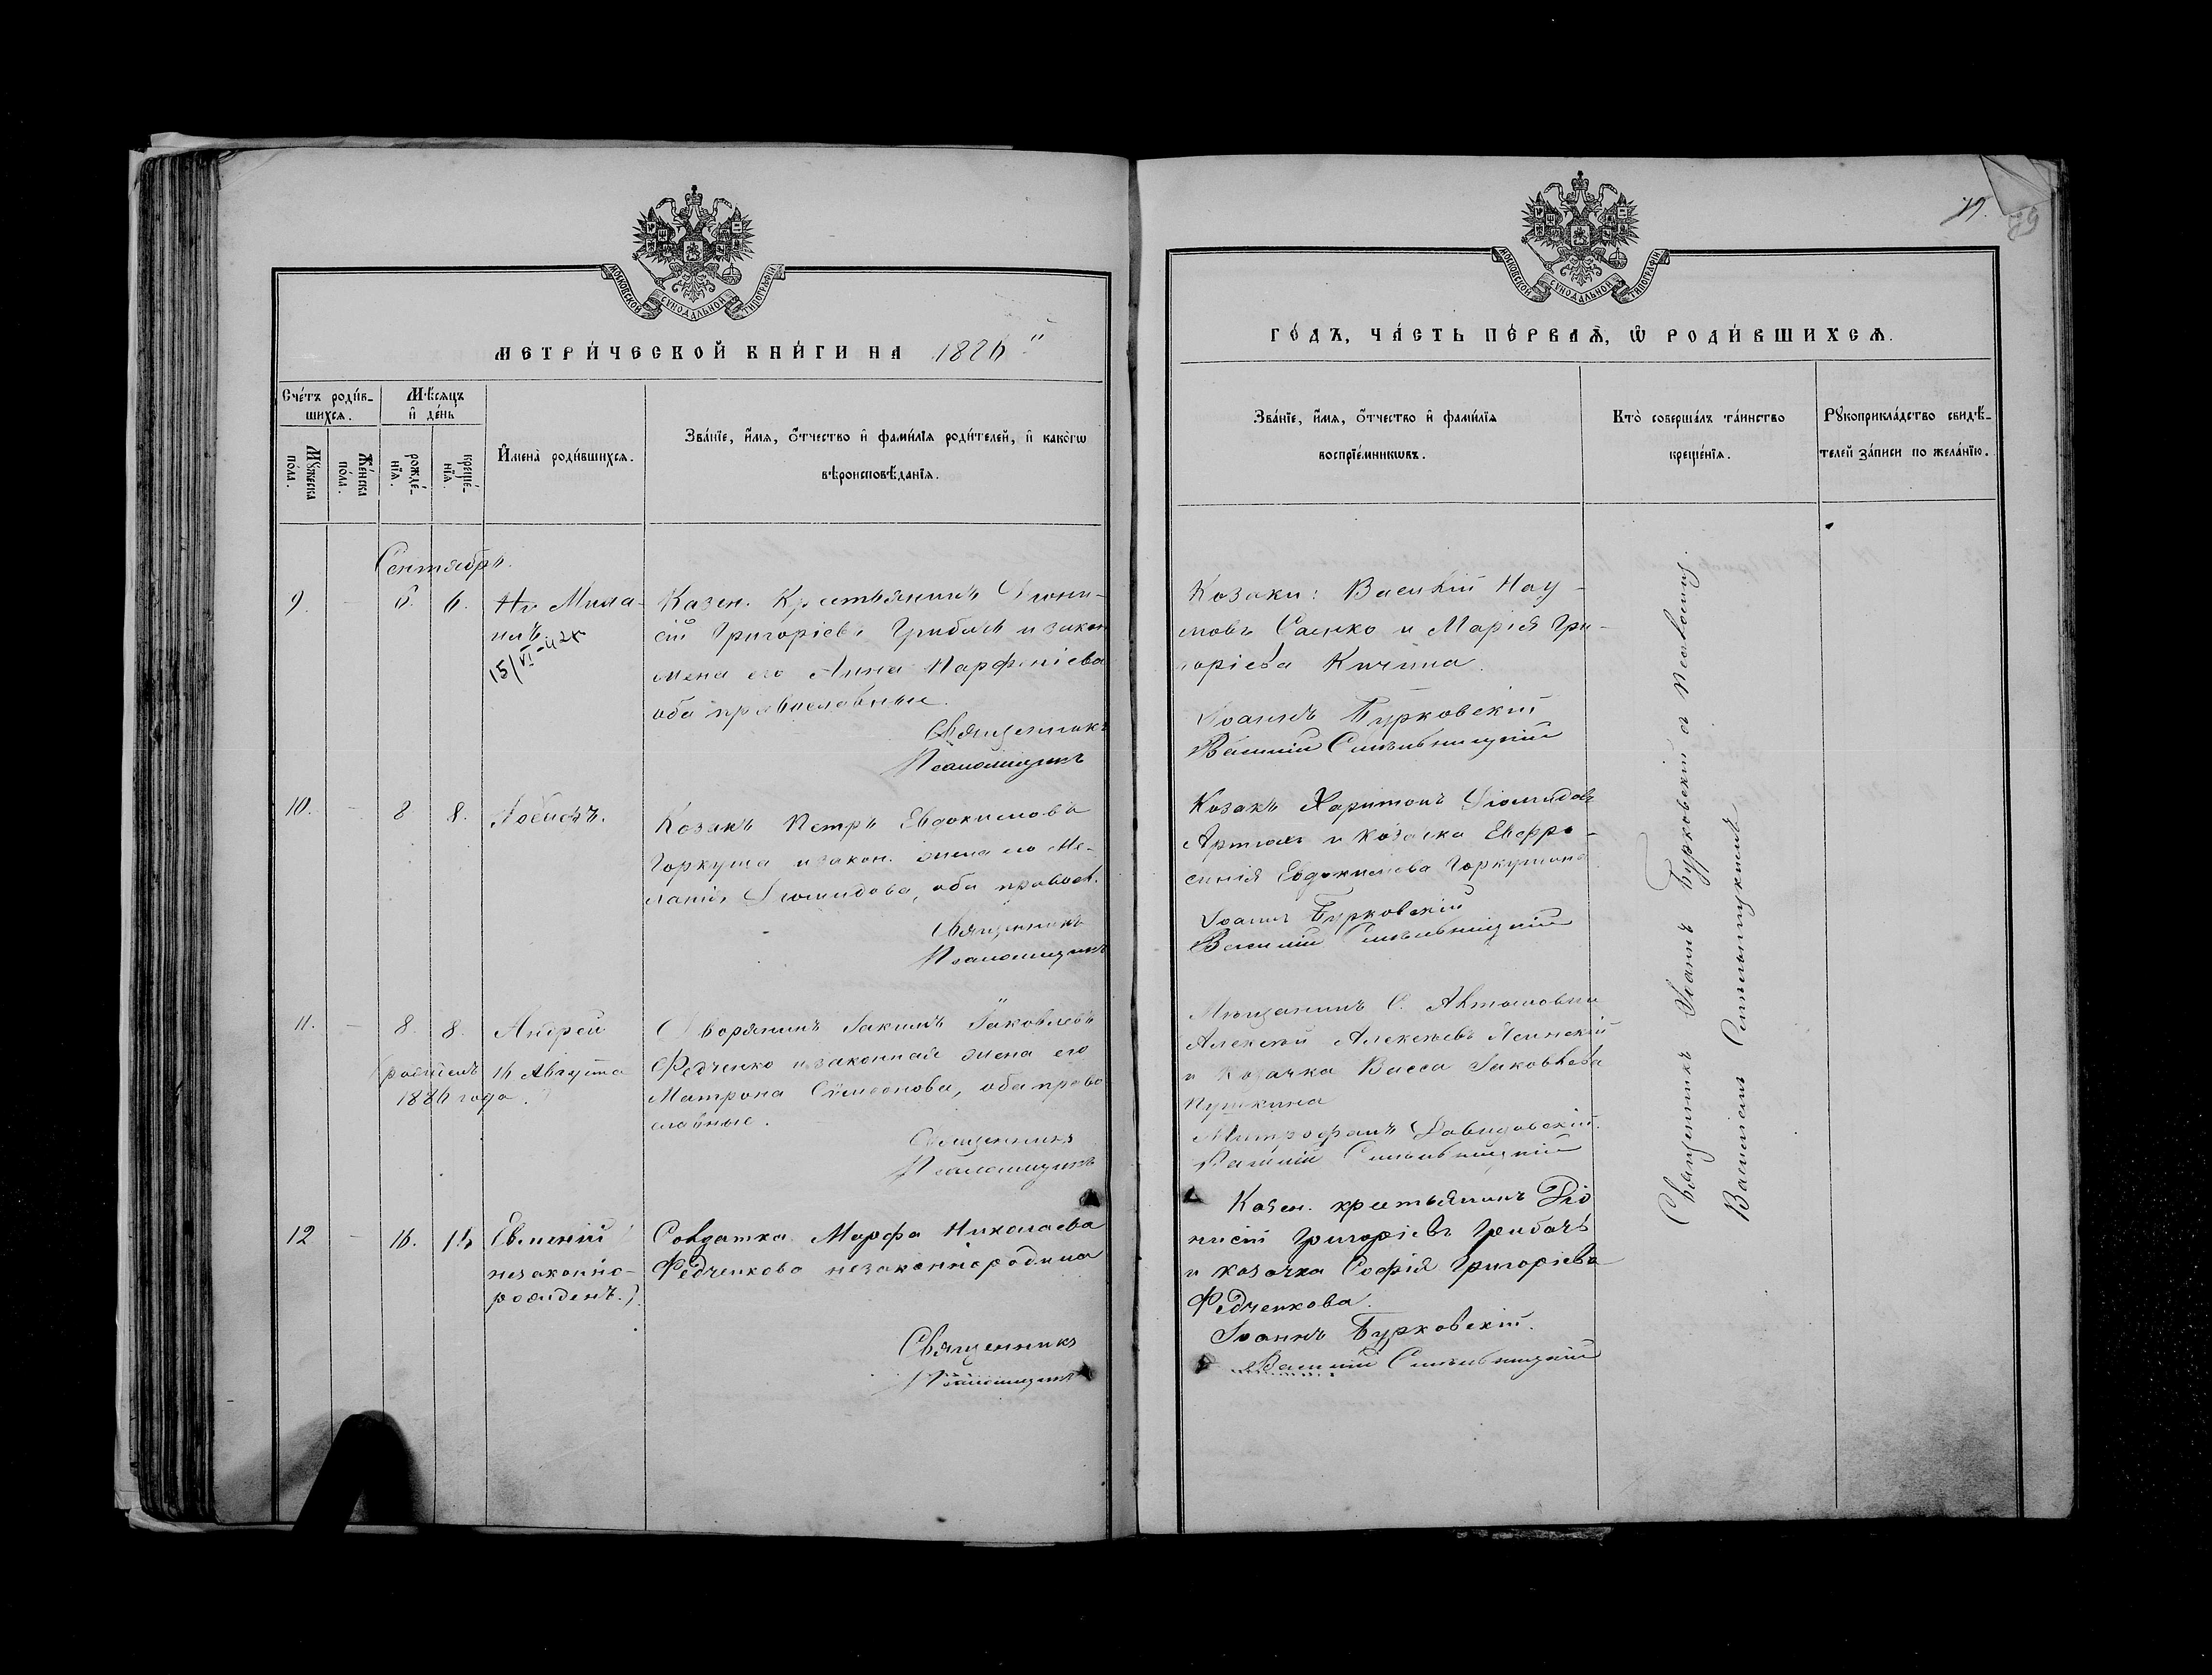 МОСКОВСКОЙ СѴНОДАЛЬНОЙ ТИПОГРАФІИ
МЕТРИ́ЧЕСКОЙ КНИ́ГИ НА 1886й
Сче́тъ роди́в-
шихся.
Мѣ́сяцъ
и҆ де́нь
Мꙋ́жеска
по́ла.
Же́нска
по́ла.
рожде́-
нїѧ.
креще́-
нїѧ.
И҆мена̀ роди́вшихся.
Зва́нїе, и҆́мя, ѻ҆́тчество и҆ фами́лїя роди́телей, и҆ како́гѡ
вѣроисповѣ́данїя.
Сентябрь.
9. - 6. 6. Мила-
нъ.
15/VI-42г
Казен. Крестьянинъ Діони-
сій Григоріевъ Грибачъ и закон
жена его Анна Парфеніева
оба православные.
Священникъ
Псаломщикъ
10. - 8 8.
Козакъ Петръ Евдокимовъ
Горкуша и закон. жена его Ме-
ланія Діомидова, оба правосл.
Священникъ
Псаломщикъ
11. - 8. 8. Андрей
(рожденъ 16 Августа
1886 года.
Дворянинъ Іакимъ Іаковлевъ
Федченко и законная жена его
Матрона Сѵмеонова, оба право
славные.
Священникъ
Псаломщикъ
12 - 16. 16 Евменій
незаконно-
рожденъ.).
Солдатка Марфа Николаева
Федченкова незаконно родила
Священникъ
Псаломщикъ
79
МОСКОВСКОЙ СѴНОДАЛЬНОЙ ТИПОГРАФІИ
ГО́ДЪ, ЧА́СТЬ ПЕ́РВАЯ, Ѡ҆ РОДИ́ВШИХСЯ.
Зва́нїе, и҆́мя, ѻ҆́тчество и҆ фами́лїя
воспрїе́мникѡвъ.
Кто̀ соверша́лъ та́инство
креще́нїя.
Рꙋкоприкла́дство свидѣ́-
телей за́писи по жела́нїю.
Козаки: Василій Нау-
мовъ Саенко и Марія Гри-
горіева Кичина.
Іоаннъ Бурковскій
Василій
Козакъ Харитонъ Діомидовъ
и козачка Евфро-
синія Евдокимова Горкушина
Іоаннъ Бурковскій
Василій
Мѣщанинъ
Алексѣй Алексѣевъ
и Козачка Васса Іаковлева
Пушкина
Митрофанъ Давидовскій.
Василій
Казен. крестьянинъ Діо
нисій Григоріевъ Грибачъ
и козачка Софія Григоріева
Федченкова.
Іоаннъ Бурковскій.
Василій
Священникъ Іоаннъ Бурковскій съ Псаломщ.
Василіемъ